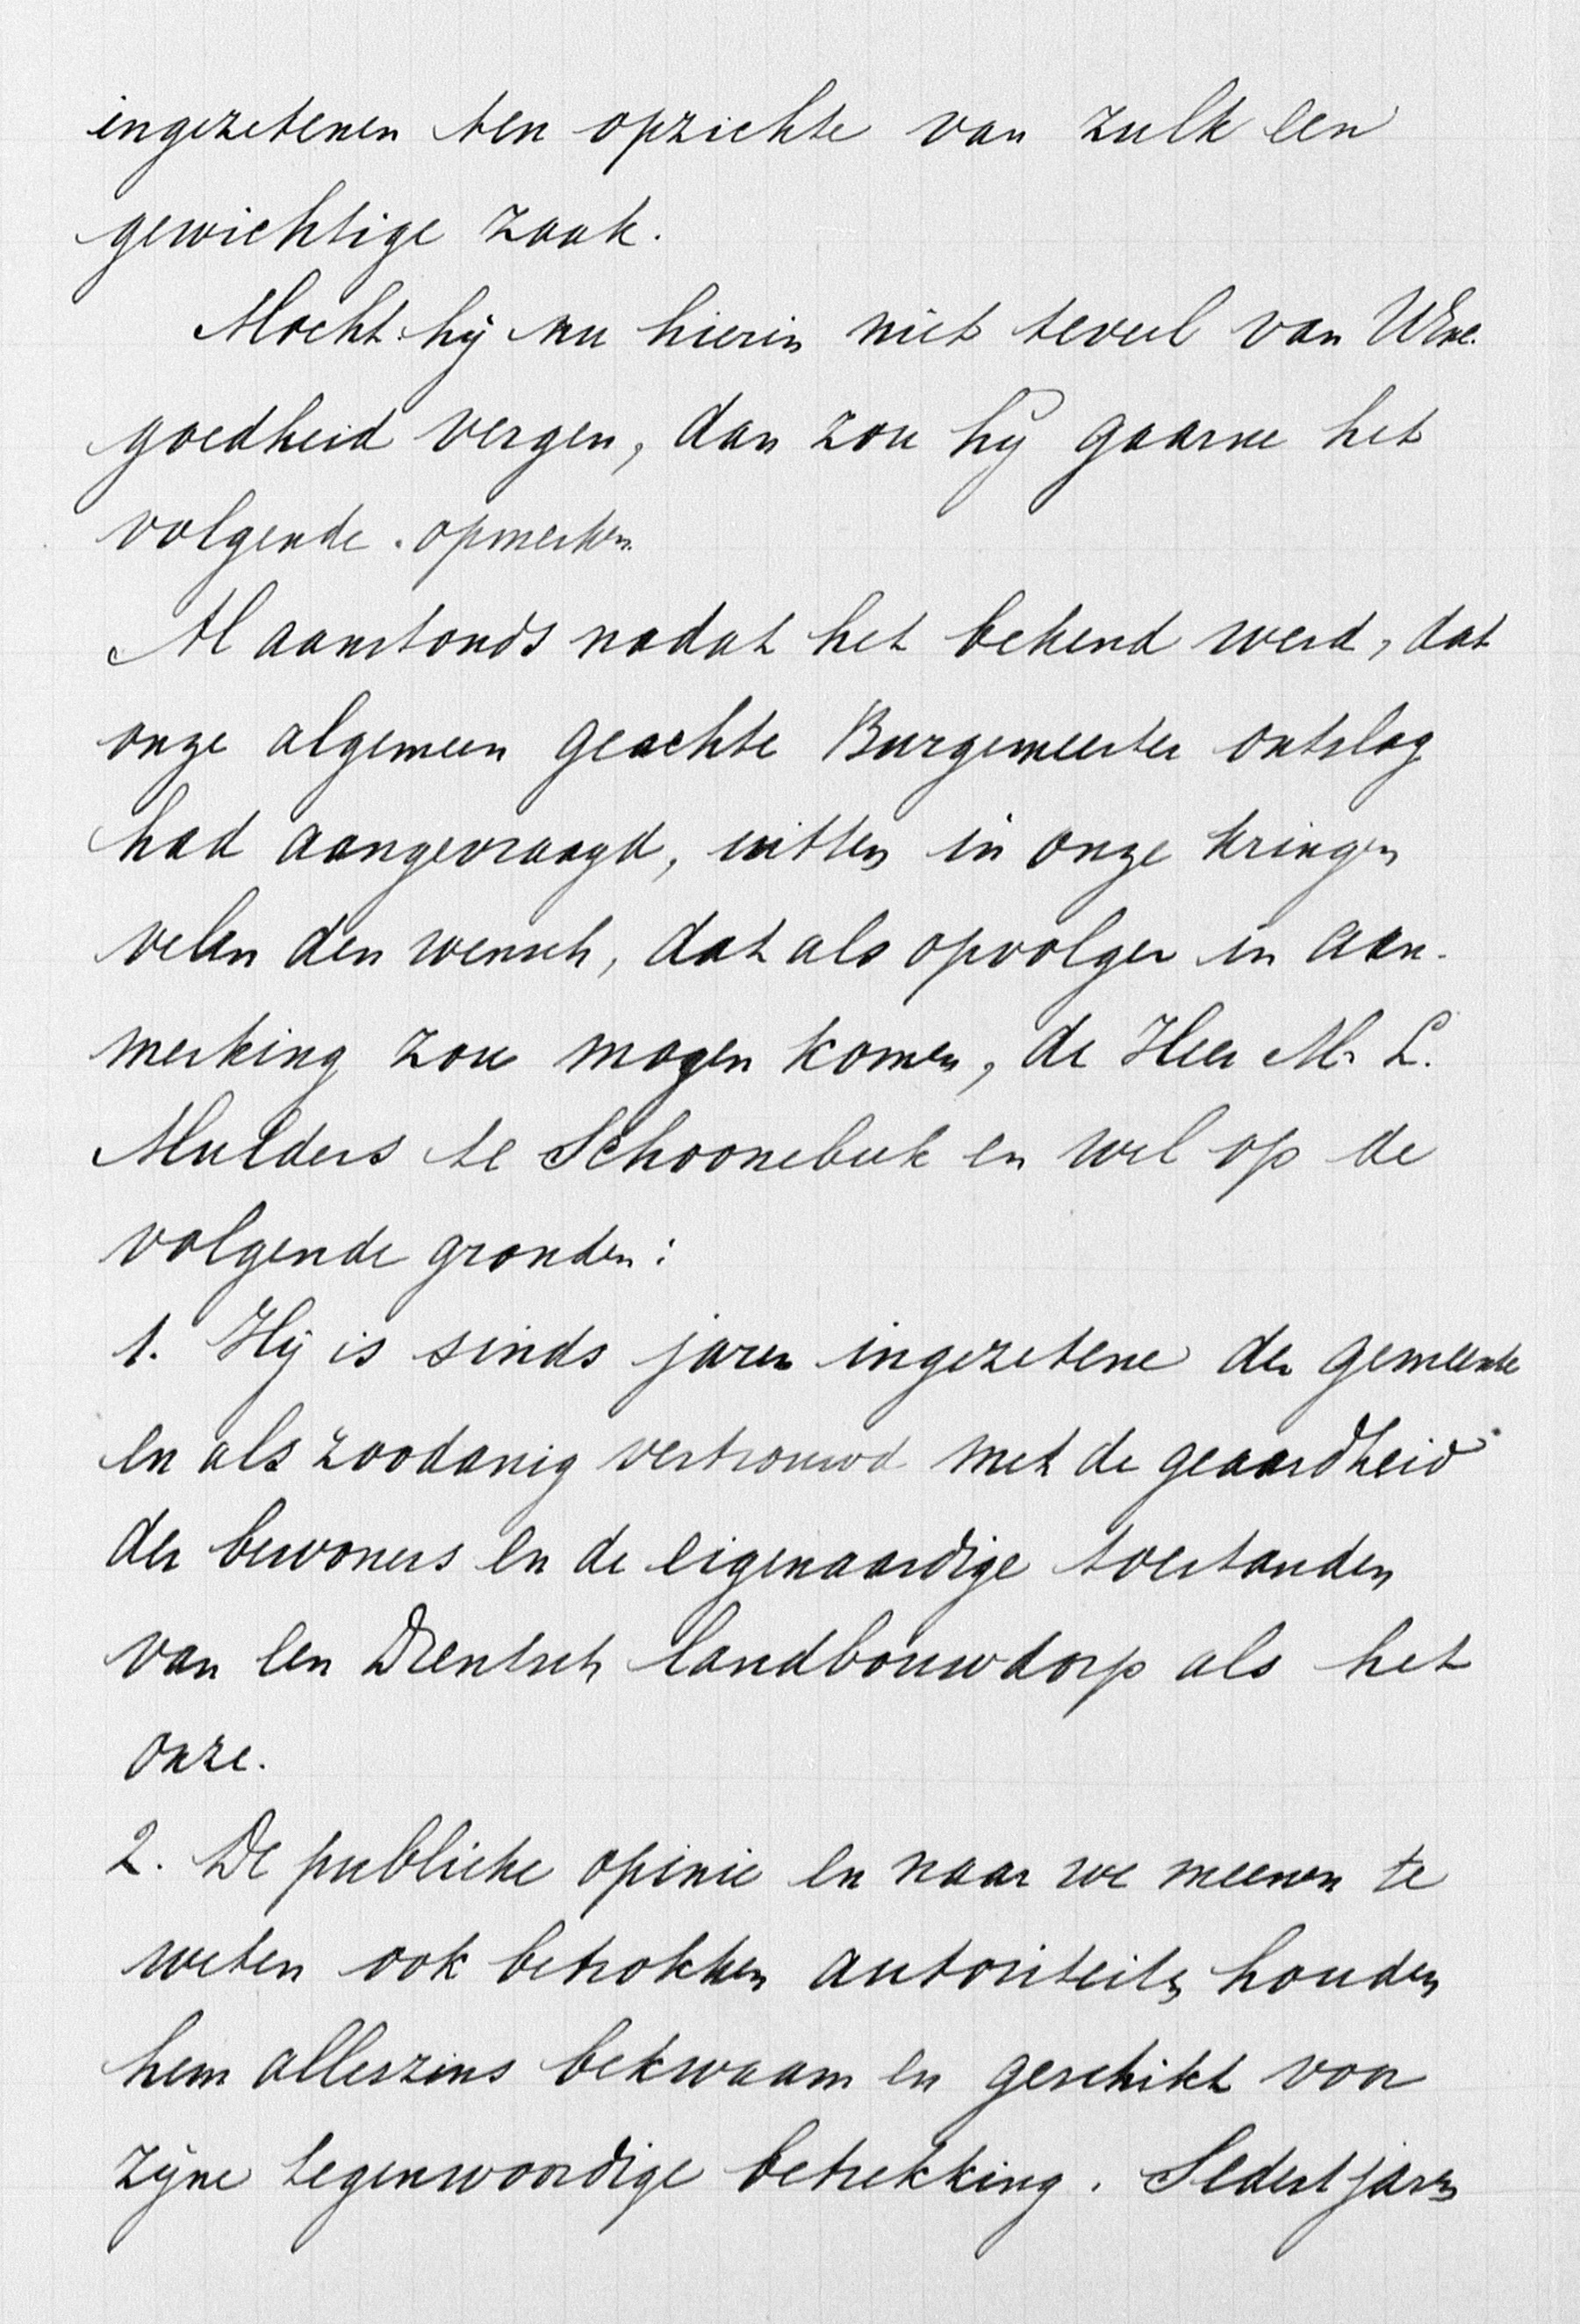 ingezetenen ten opzichte van zulk een
gewichtige zaak.
Mocht hij nu hierin niet teveel van UExc.
goedheid vergen, dan zou hij gaarne het
volgende opmerken.
Al aanstonds nadat het bekend werd, dat
onze algemeen geachte Burgemeester ontslag
had aangevraagd, uitten in onze kringen
velen den wensch, dat als opvolger in aan-
merking zou mogen komen, de Heer M. L.
Mulders te Schoonebeek en wel op de
volgende gronden:
1. Hij is sinds jaren ingezetene der gemeente
en als zoodanig vertrouwd met de geaardheid
der bewoners en de eigenaardige toestanden
van een Drentsch landbouwdorp als het
onze.
2. De publieke opinie en naar we meenen te
weten ook betrokken autoriteiten houden
hem alleszins bekwaam en geschikt voor
zijne tegenwoordige betrekking. Sedert jaren